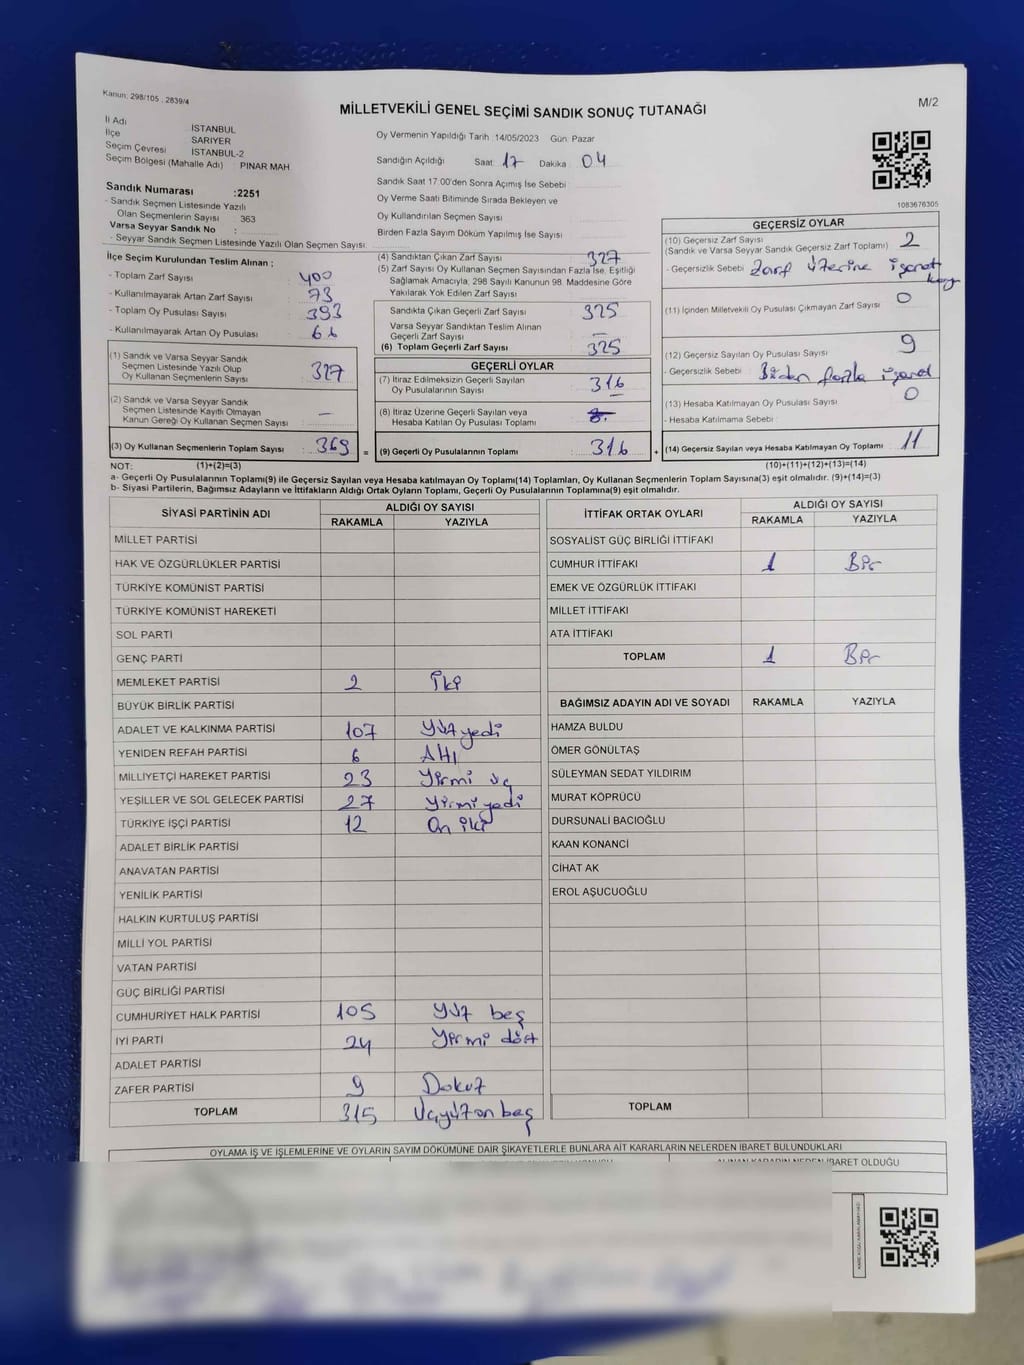 Kanun: 298/105 . 2839/4
MİLLETVEKİLİ GENEL SEÇİMİ SANDIK SONUÇ TUTANAĞI
M/2
İl Adı İSTANBUL
İlçe SARIYER
Seçim Çevresi İSTANBUL-2
Seçim Bölgesi (Mahalle Adı) : PINAR MAH
Sandık Numarası :2251
- Sandık Seçmen Listesinde Yazılı
Olan Seçmenlerin Sayısı : 363
Varsa Seyyar Sandık No :
- Seyyar Sandık Seçmen Listesinde Yazılı Olan Seçmen Sayısı:
Oy Vermenin Yapıldığı Tarih :14/05/2023 Gün: Pazar
Sandığın Açıldığı Saat: 17 Dakika : 04
Sandık Saat 17:00'den Sonra Açımış İse Sebebi :
Oy Verme Saati Bitiminde Sırada Bekleyen ve
Oy Kullandırılan Seçmen Sayısı :
Birden Fazla Sayım Döküm Yapılmış İse Sayısı :
1083676305
İlçe Seçim Kurulundan Teslim Alınan ;
- Toplam Zarf Sayısı : 400
- Kullanılmayarak Artan Zarf Sayısı : 73
- Toplam Oy Pusulası Sayısı : 393
- Kullanılmayarak Artan Oy Pusulası : 66
(1) Sandık ve Varsa Seyyar Sandık
Seçmen Listesinde Yazılı Olup
Oy Kullanan Seçmenlerin Sayısı : 327
(2) Sandık ve Varsa Seyyar Sandık
Seçmen Listesinde Kayıtlı Olmayan
Kanun Gereği Oy Kullanan Seçmen Sayısı : –
(3) Oy Kullanan Seçmenlerin Toplam Sayısı : 369 =
(4) Sandıktan Çıkan Zarf Sayısı : 327
(5) Zarf Sayısı Oy Kullanan Seçmen Sayısından Fazla İse, Eşitliği
Sağlamak Amacıyla, 298 Sayılı Kanunun 98. Maddesine Göre
Yakılarak Yok Edilen Zarf Sayısı :
Sandıkta Çıkan Geçerli Zarf Sayısı : 325
Varsa Seyyar Sandıktan Teslim Alınan
Geçerli Zarf Sayısı : –
(6) Toplam Geçerli Zarf Sayısı : 325
GEÇERLİ OYLAR
(7) İtiraz Edilmeksizin Geçerli Sayılan
Oy Pusulalarının Sayısı : 316
(8) İtiraz Üzerine Geçerli Sayılan veya
Hesaba Katılan Oy Pusulası Toplamı :
(9) Geçerli Oy Pusulalarının Toplamı : 316 +
GEÇERSİZ OYLAR
(10) Geçersiz Zarf Sayısı : 2
(Sandık ve Varsa Seyyar Sandık Geçersiz Zarf Toplamı)
- Geçersizlik Sebebi : Zarf üzerine işaret
(11) İçinden Milletvekili Oy Pusulası Çıkmayan Zarf Sayısı : 0
(12) Geçersiz Sayılan Oy Pusulası Sayısı : 9
- Geçersizlik Sebebi : Birden fazla işaret
(13) Hesaba Katılmayan Oy Pusulası Sayısı : 0
- Hesaba Katılmama Sebebi :
(14) Geçersiz Sayılan veya Hesaba Katılmayan Oy Toplamı : 11
NOT: (1)+(2)=(3) (10)+(11)+(12)+(13)=(14)
a- Geçerli Oy Pusulalarının Toplamı(9) ile Geçersiz Sayılan veya Hesaba Katılmayan Oy Toplamı(14) Toplamları, Oy Kullanan Seçmenlerin Toplam Sayısına(3) eşit olmalıdır. (9)+(14)=(3)
b- Siyasi Partilerin, Bağımsız Adayların ve İttifakların Aldığı Ortak Oyların Toplamı, Geçerli Oy Pusulalarının Toplamına(9) eşit olmalıdır.
SİYASİ PARTİNİN ADI ALDIĞI OY SAYISI
RAKAMLA YAZIYLA
MİLLET PARTİSİ
HAK VE ÖZGÜRLÜKLER PARTİSİ
TÜRKİYE KOMÜNİST PARTİSİ
TÜRKİYE KOMÜNİST HAREKETİ
SOL PARTİ
GENÇ PARTİ
MEMLEKET PARTİSİ 2 iki
BÜYÜK BİRLİK PARTİSİ
ADALET VE KALKINMA PARTİSİ 107 Yüz yedi
YENİDEN REFAH PARTİSİ 6 Altı
MİLLİYETÇİ HAREKET PARTİSİ 23 Yirmi üç
YEŞİLLER VE SOL GELECEK PARTİSİ 27 Yirmi yedi
TÜRKİYE İŞÇİ PARTİSİ 12 On iki
ADALET BİRLİK PARTİSİ
ANAVATAN PARTİSİ
YENİLİK PARTİSİ
HALKIN KURTULUŞ PARTİSİ
MİLLİ YOL PARTİSİ
VATAN PARTİSİ
GÜÇ BİRLİĞİ PARTİSİ
CUMHURİYET HALK PARTİSİ 105 Yüz beş
İYİ PARTİ 24 Yirmi dört
ADALET PARTİSİ
ZAFER PARTİSİ 9 Dokuz
TOPLAM 315 Üçyüz on beş
İTTİFAK ORTAK OYLARI ALDIĞI OY SAYISI
RAKAMLA YAZIYLA
SOSYALİST GÜÇ BİRLİĞİ İTTİFAKI
CUMHUR İTTİFAKI 1 Bir
EMEK VE ÖZGÜRLÜK İTTİFAKI
MİLLET İTTİFAKI
ATA İTTİFAKI
TOPLAM 1 Bir
BAĞIMSIZ ADAYIN ADI VE SOYADI RAKAMLA YAZIYLA
HAMZA BULDU
ÖMER GÖNÜLTAŞ
SÜLEYMAN SEDAT YILDIRIM
MURAT KÖPRÜCÜ
DURSUNALİ BACIOĞLU
KAAN KONANCİ
CİHAT AK
EROL AŞUCUOĞLU
TOPLAM
OYLAMA İŞ VE İŞLEMLERİNE VE OYLARIN SAYIM DÖKÜMÜNE DAİR ŞİKAYETLERLE BUNLARA AİT KARARLARIN NELERDEN İBARET BULUNDUKLARI
İBARET OLDUĞU